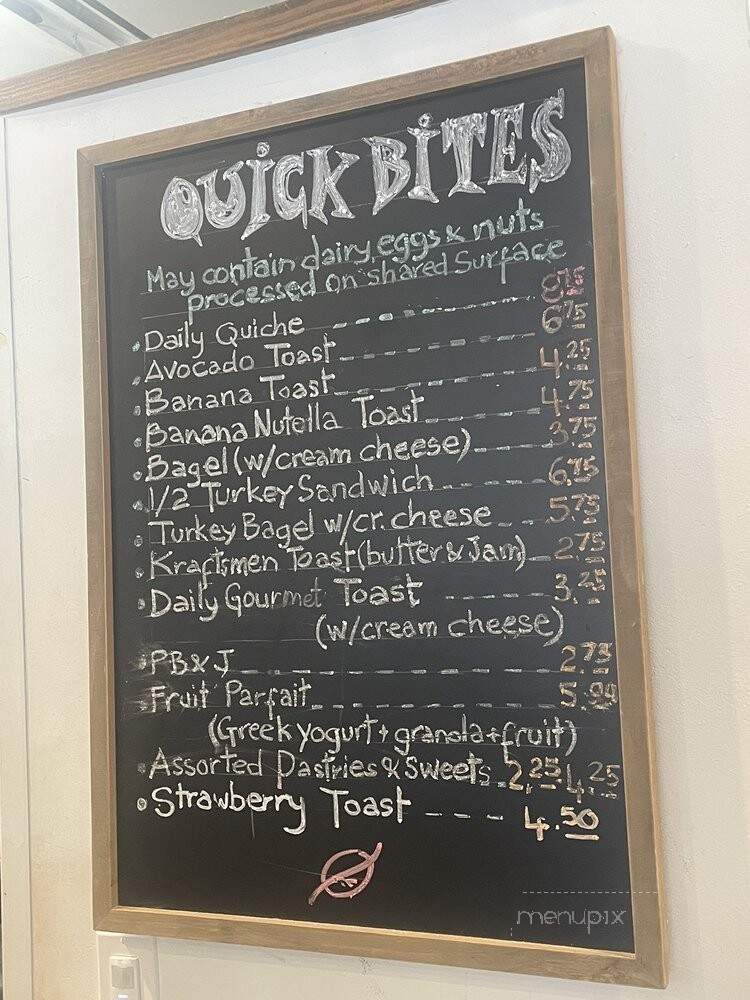 QUICK BITES
May contain dairy, eggs & nuts
processed on shared Surface
Daily Quiche 8.75
Avocado Toast 6.75
Banana Toast 4.25
Banana Nutella Toast 4.75
Bagel (w/cream cheese) 3.75
1/2 Turkey Sandwich 6.75
Turkey Bagel w/cr. cheese 5.75
Kraftsmen Toast (butter & Jam) 2.75
Daily Gourmet Toast 3.25
(w/cream cheese)
PB & J 2.75
Fruit Parfait
(Greek yogurt + granola + fruit)
Assorted Pastries & Sweets 2.25 4.25
Strawberry Toast 4.50
menupix